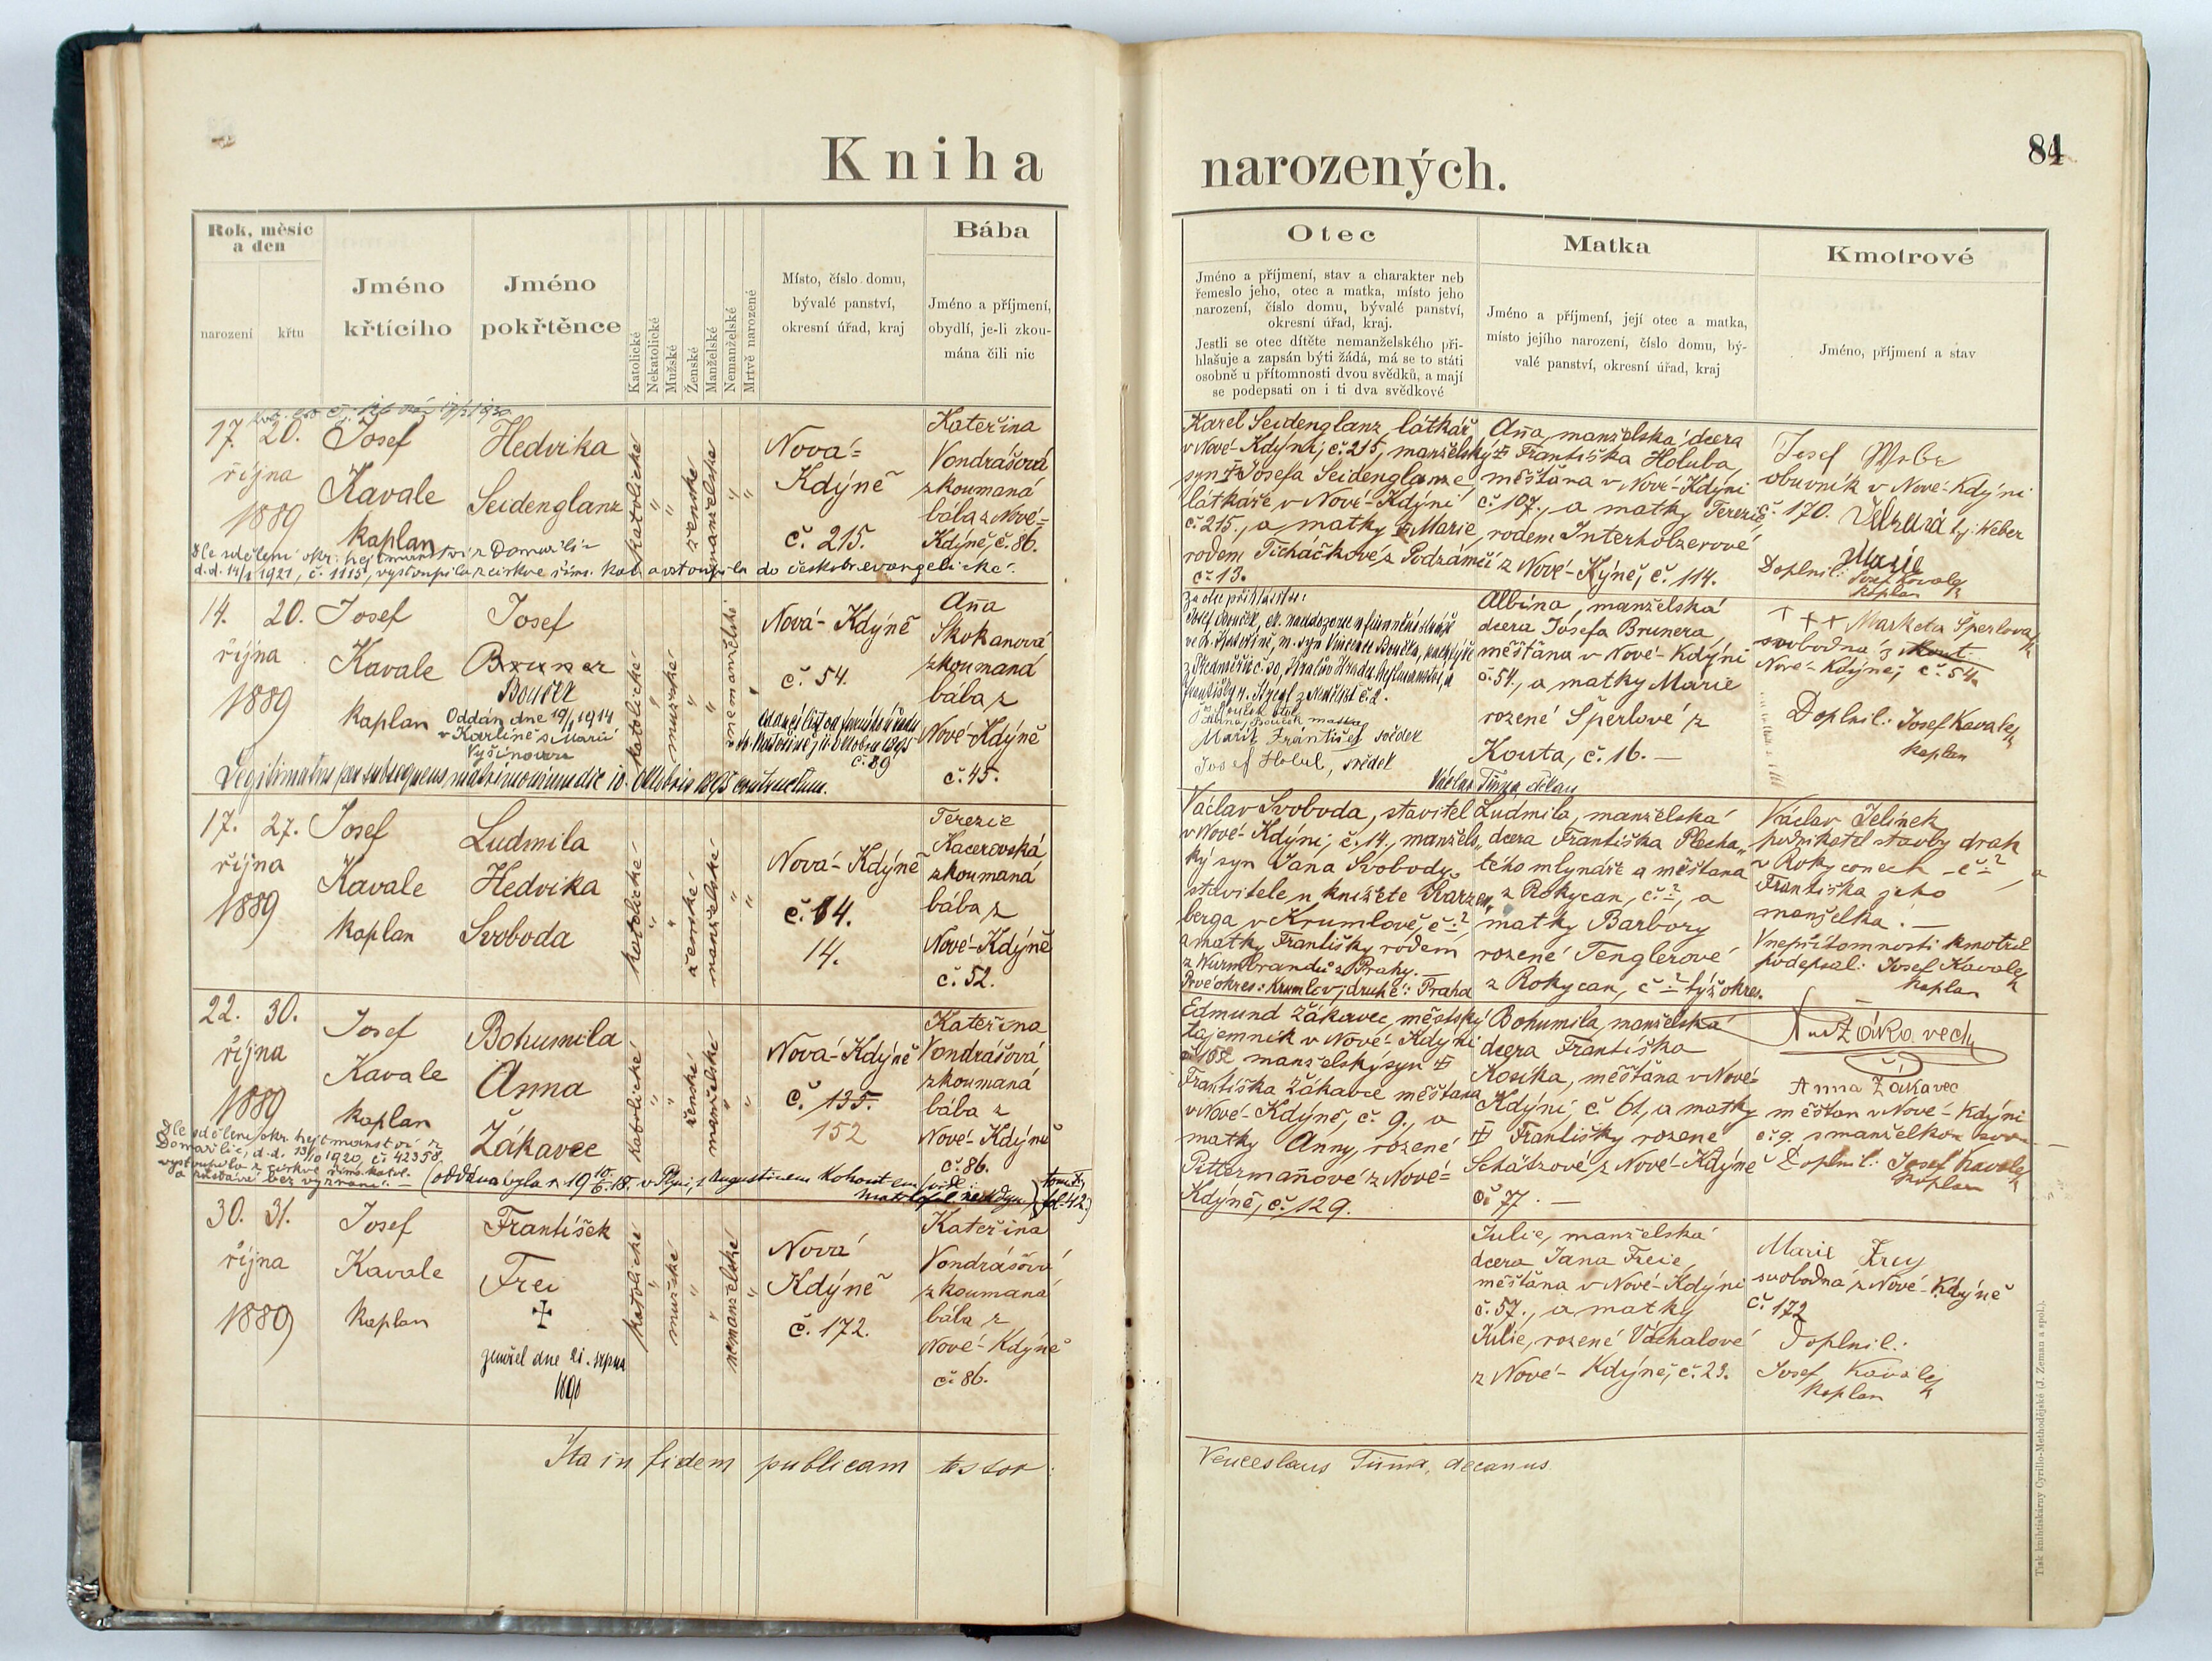 Kniha
narozených.
84
Rok, měsíc
a den
narození
křtu
Jméno
křtícího
Jméno
pokřtěnce
Katolické
Nekatolické
Mužské
Ženské
Manželské
Nemanželské
Mrtvě narozené
Místo, číslo domu,
bývalé panství,
okresní úřad, kraj
Bába
Jméno a příjmení,
obydlí, je-li zkou-
mána čili nic
Otec
Jméno a příjmení, stav a charakter neb
řemeslo jeho, otec a matka, místo jeho
narození, číslo domu, bývalé panství,
okresní úřad, kraj.
Jestli se otec dítěte nemanželského při-
hlašuje a zapsán býti žádá, má se to státi
osobně u přítomnosti dvou svědků, a mají
se podepsati on i ti dva svědkové
Matka
Jméno a příjmení, její otec a matka,
místo jejího narození, číslo domu, bý-
valé panství, okresní úřad, kraj
Kmotrové
Jméno, příjmení a stav
17. 20.
října
1889
Josef
Kavale
kaplan
Hedvika
Seidenglanz
katolické
ženské
manželské
Nová-
Kdýně
č. 215.
Kateřina
Vondrášová
zkoumaná
bába z Nové-
Kdýně, č. 86.
Dle sdělení okr. hejtmanství z Domažlic
d.d. 14/1 1921, č. 1115, vystoupila z církve řím. kat. a vstoupila do českobr. evangelické.
Karel Seidenglanz, látkář
v Nové-Kdýni, č. 215, manželský
syn Josefa Seidenglanze
látkáře v Nové-Kdýni
č. 215., a matky Marie,
rodem Ticháčkové z Podzámčí
č. 13.
Aña, manželská dcera
Františka Holuba,
měšťana v Nové-Kdýni
č. 107., a matky Terezie,
rodem Interholzerové
z Nové-Kdýně, č. 114.
Josef
obuvník v Nové-Kdýni
č. 170.
Weber
Marie
Doplnil: Josef Kavale
kaplan
14. 20.
října
1889
Josef
Kavale
kaplan
Josef
Bruner
Bouček
Oddán dne 19/1 1914
v Karlíně s Marií
katolické
mužské
nemanželské
Nová-Kdýně
č. 54.
č. 89
Aña
Skokanová
zkoumaná
bába z
Nové-Kdýně
č. 45.
Legitimatus per subsequens matrimonium die 10. Octobris 1895 contractum.
Za otce přihlásil se:
Josef Bouček,
Marik František svědek
Josef Holub, svědek
Václav Tůma, děkan
Albína, manželská
dcera Josefa Brunera,
měšťana v Nové-Kdýni
č. 54., a matky Marie
rozené Šperlové z
Kouta, č. 16. —
+++ Marketa Šperlova
svobodná z Kout.
Nové-Kdýně, č. 54.
Doplnil: Josef Kavale
kaplan
17. 27.
října
1889
Josef
Kavale
kaplan
Ludmila
Hedvika
Svoboda
katolické
ženské
manželské
Nová-Kdýně
č. 14.
14.
Terezie
Kacerovská
zkoumaná
bába z
Nové-Kdýně
č. 52.
Václav Svoboda, stavitel
v Nové-Kdýni, č. 14., manžels„
ký syn Jana Svobody,
stavitele u knížete Švarzen„
berga v Krumlově, č. ?
a matky Františky rodem
z Wurmbrandů z Prahy. —
Prvé okres: Krumlov, druhé: Praha
Ludmila, manželská
dcera Františka Plecha„
tého mlynáře a měšťana
z Rokycan, č. ?, a
matky Barbory
rozené Tenglerové
z Rokycan, č. ? týž okres.
Václav Jelínek
podnikatel stavby drah
v Rokycanech č. ?, a
Františka jeho
manželka. —
V nepřítomnosti kmotrů
podepsal: Josef Kavale
kaplan
22. 30.
října
1889
Josef
Kavale
kaplan
Bohumila
Anna
Žákavec
katolické
ženské
manželské
Nová-Kdýně
č. 135.
152
Kateřina
Vondrášová
zkoumaná
bába z
Nové-Kdýně
č. 86.
Dle sdělení okr. hejtmanství z
Domažlic, d.d. 13/10 1920, č. 42358.
vystoupila z církve řím. katol.
a zůstává bez vyznání. —
(oddána byla r. 19 10/6 18. v Plzni, s Augustinem Kohoutem
Edmund Žákavec, městský
tajemník v Nové-Kdýni
č. 152 manželský syn
Františka Žákavce měšťana
v Nové-Kdýně, č. 9., a
matky Anny, rozené
Pittermañové z Nové-
Kdýně, č. 129.
Bohumila, manželská
dcera Františka
Kosíka, měšťana v Nové-
Kdýni, č. 61, a matky
Františky rozené
Schätzové z Nové-Kdýně
č. 77. —
Anna Žákavec
měšťan v Nové-Kdýni
č. 9. s manželkou
Doplnil: Josef Kavale
kaplan
30. 31.
října
1889
Josef
Kavale
kaplan
František
Frei
zemřel dne 21. srpna
1890
katolické
mužské
nemanželské
Nová
Kdýně
č. 172.
Kateřina
Vondrášová
zkoumaná
bába z
Nové-Kdýně
č. 86.
Julie, manželská
dcera Jana Freie,
měšťana v Nové-Kdýni
č. 57., a matky
Julie, rozené Váchalové
z Nové-Kdýně, č. 23.
Marie Frey
svobodná z Nové-Kdýně
č. 172
Doplnil:
Josef Kavale
kaplan
Ita in fidem publicam testor:
Venceslaus Tůma, decanus
Tisk knihtiskárny Cyrillo-Methodějské (J. Zeman a spol.).